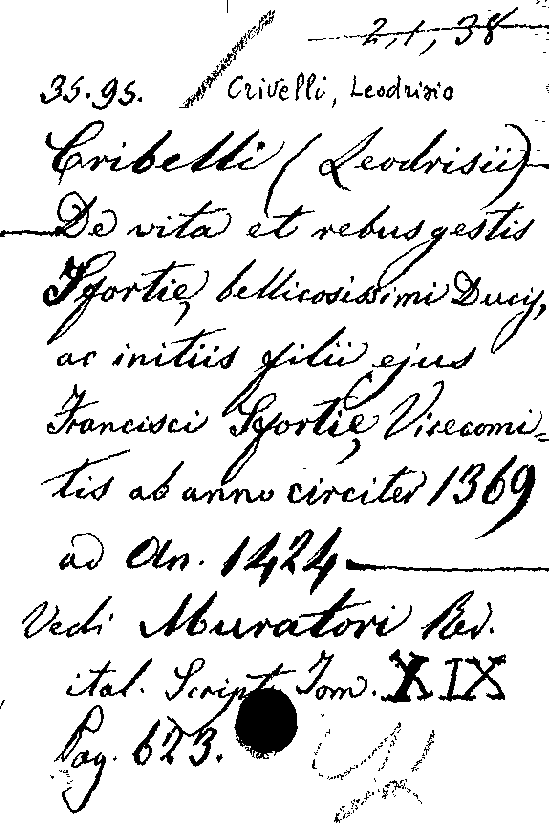 2, 1, 38
35.95.
Crivelli, Leodrisio
Cribelli (Leodrisii)
De vita et rebus gestis
Sfortię, bellicosissimi Ducis,
ac initiis filii ejus
Francisci Sfortię, Vicecomi=
tis ab anno circiter 1369
ad An. 1424
Vedi Muratori Rer.
ital. Script. Tom. XIX
Pag. 623.